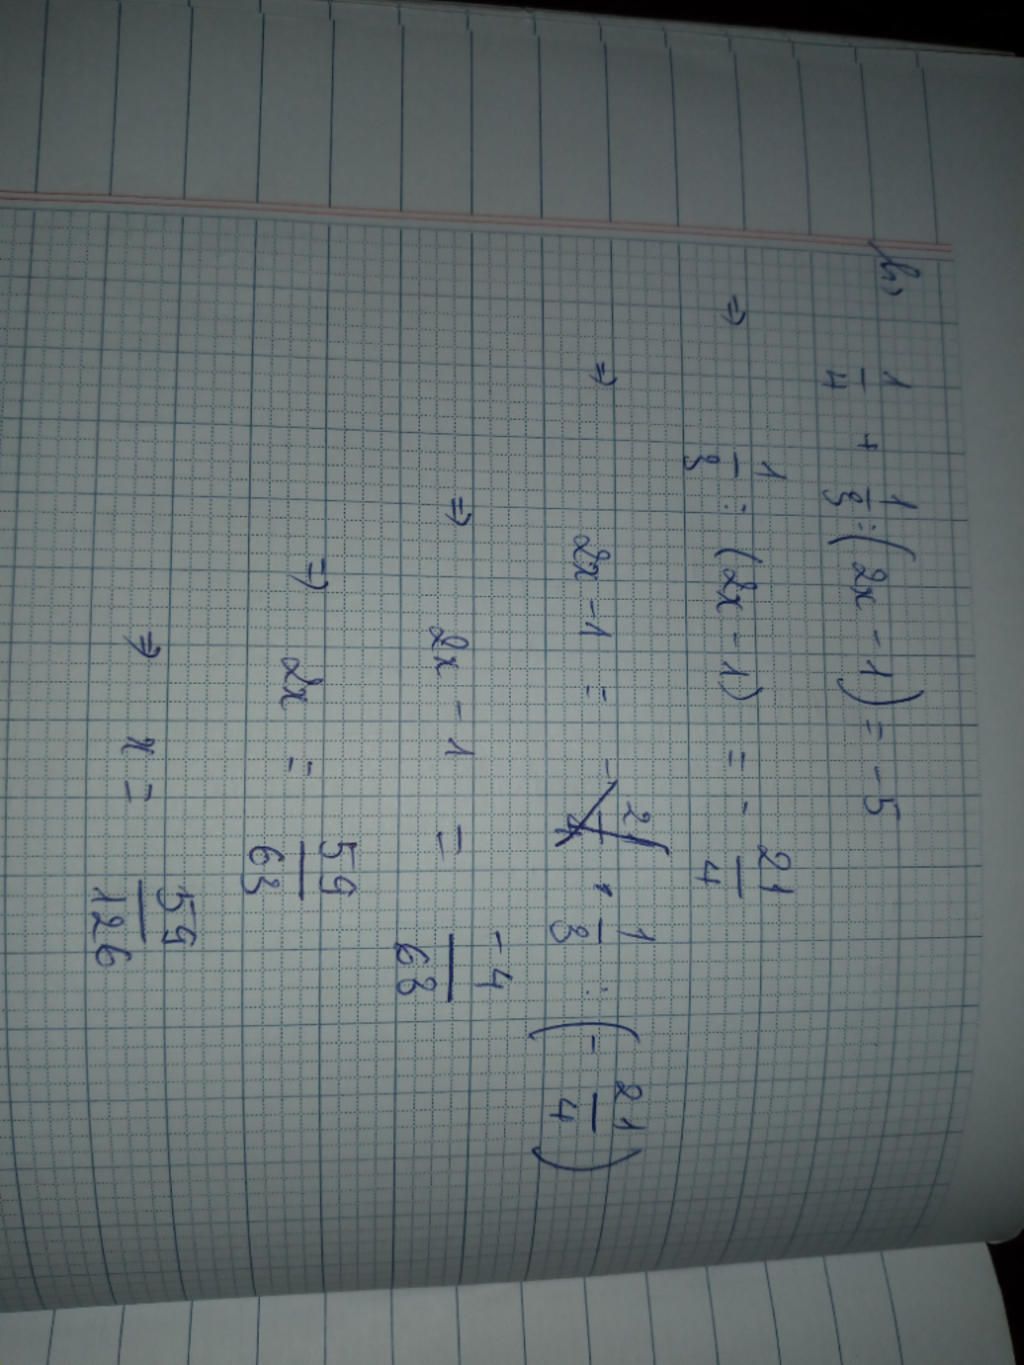 b) 1/4 + 1/3 : (2x - 1) = -5
=> 1/3 : (2x - 1) = - 21/4
=> 2x - 1 = 1/3 : (- 21/4)
=> 2x - 1 = -4/63
=> 2x = 59/63
=> x = 59/126